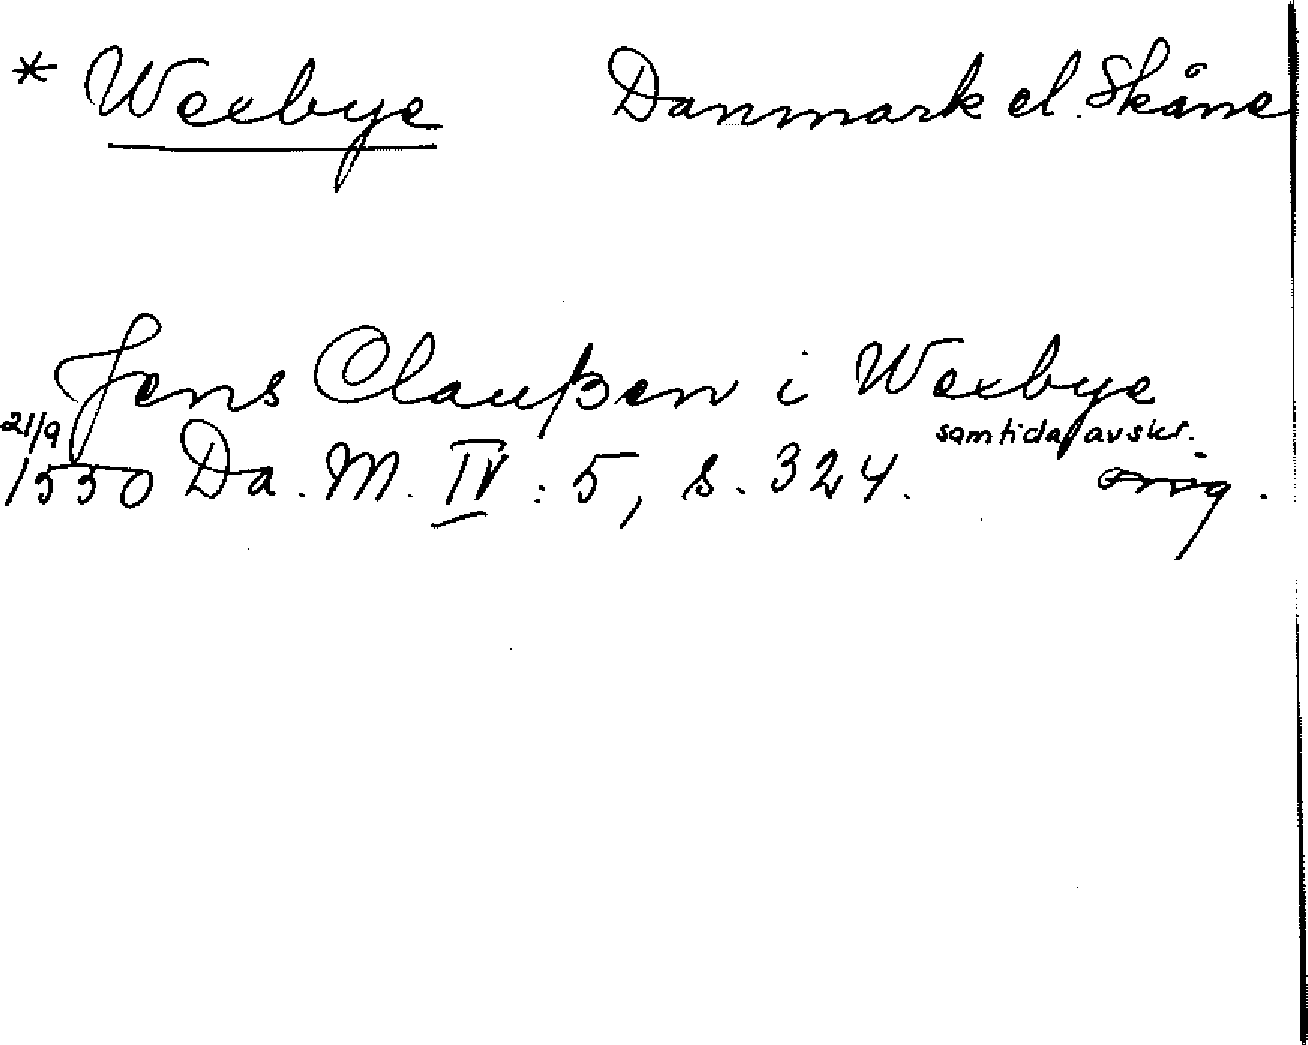 * Wexbye Danmark el. Skåne
Jens Claußen i Wexbye
21/9 samtida avskr.
1550 Da. M. IV : 5, s. 324. orig.